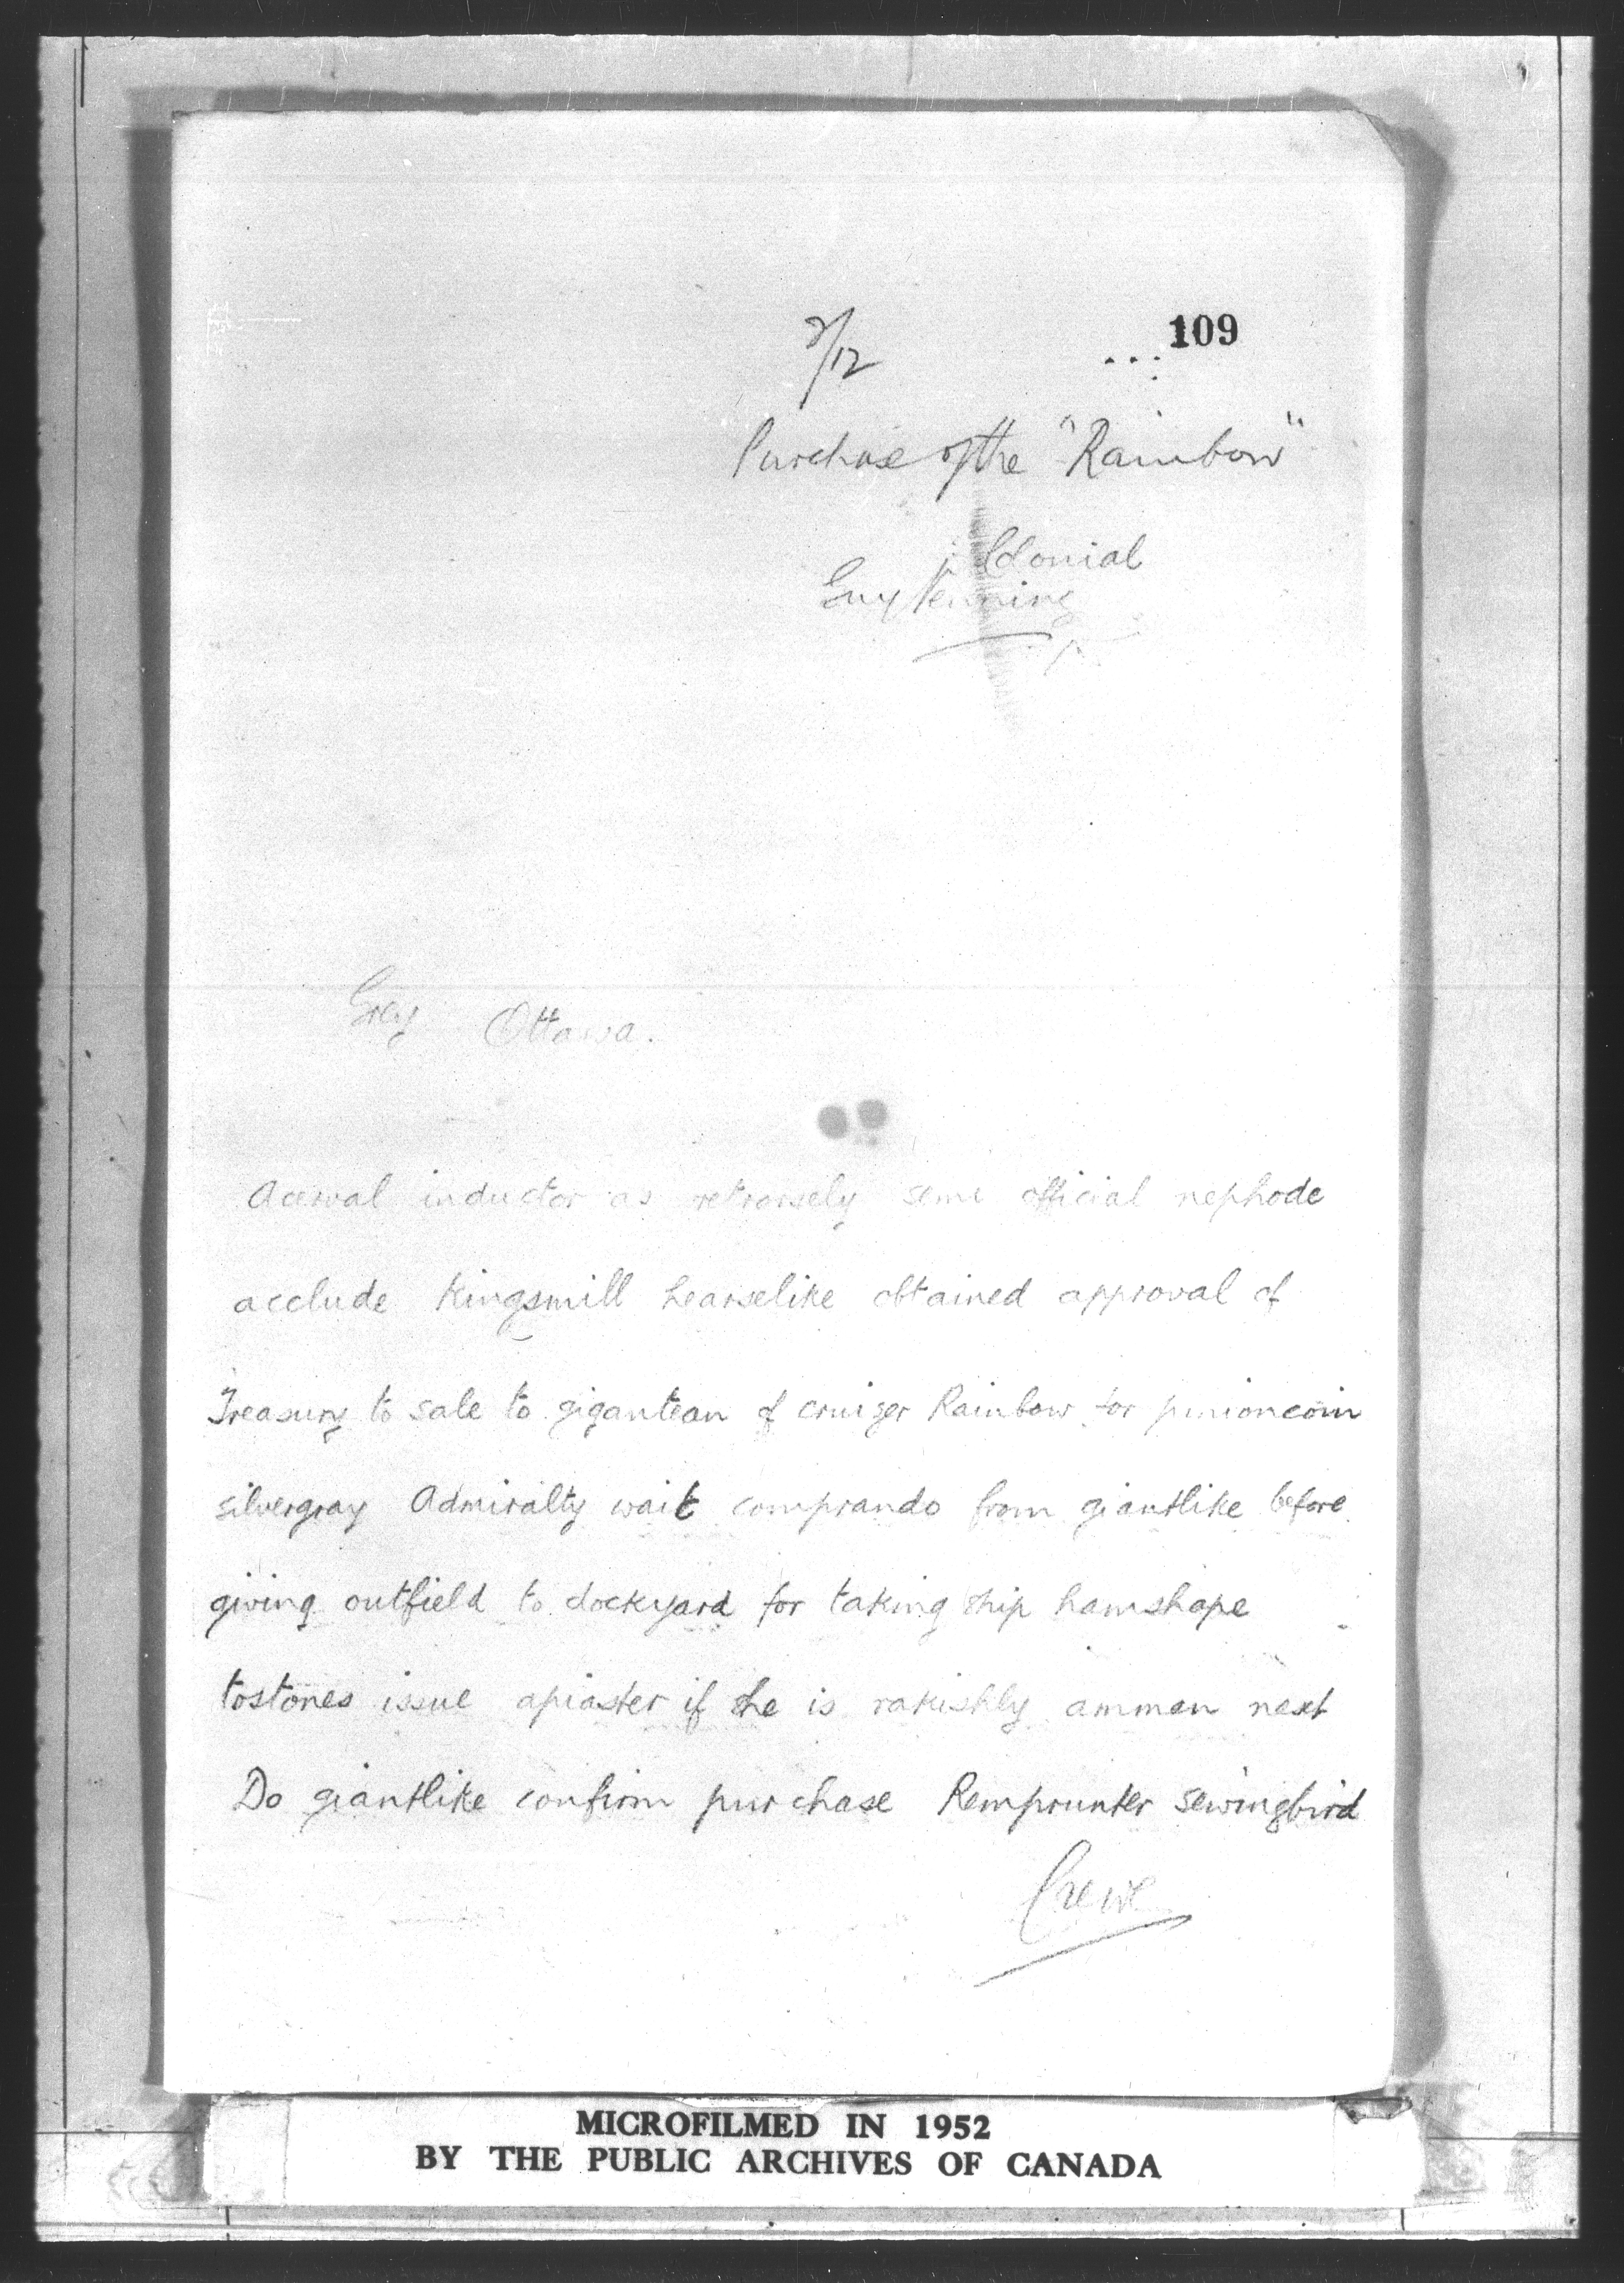 109
7/12
Purchase of the "Rainbow"
Colonial
Guy
Grey Ottawa.
Acerval inductor as retrorsely semi official nephode
acclude Kingsmill hearselike obtained approval of
Treasury to sale to gigantean of cruiser Rainbow for pinioncoin
silvergray Admiralty wait comprando from giantlike before
giving outfield to dockyard for taking ship hamshape
tostones issue apiaster if she is rakishly ammen next
Do giantlike confirm purchase Remprunter sewingbird
Crewe
MICROFILMED IN 1952
BY THE PUBLIC ARCHIVES OF CANADA